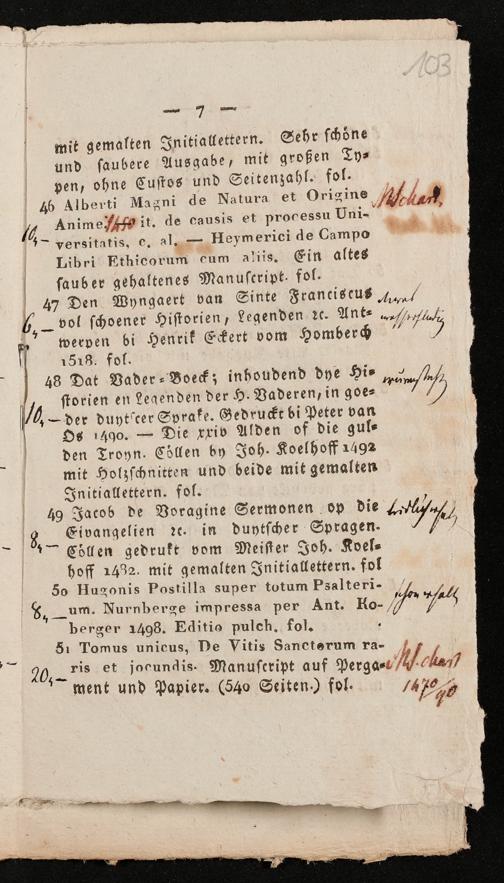 103
— 7 —
mit gemalten Initiallettern. Sehr schöne
und saubere Ausgabe, mit großen Ty-
pen, ohne Custos und Seitenzahl. fol.
46 Alberti Magni de Natura et Origine MSchart.
10,- Anime 1460 it. de causis et processu Uni-
versitatis, c. al. — Heymerici de Campo
Libri Ethicorum cum aliis. Ein altes
sauber gehaltenes Manuscript. fol.
47 Den Wyngaert van Sinte Franciscus etwas
6,- vol schoener Historien, Legenden ꝛc. Ant-
werpen bi Henrik Eckert vom Homberch
1518. fol.
48 Dat Vader-Boeck; inhoudend dye Hi-
storien en Legenden der H. Vaderen, in goe-
10,- der duytscer Sprake. Gedruckt bi Peter van
Os 1490. — Die xxiv Alden of die gul-
den Troyn. Cöllen by Joh. Koelhoff 1492
mit Holzschnitten und beide mit gemalten
Initiallettern. fol.
49 Jacob de Voragine Sermonen op die
Eivangelien ꝛc. in duytscher Spragen.
8,- Cöllen gedrukt vom Meister Joh. Koel-
hoff 1482. mit gemalten Initiallettern. fol
50 Hugonis Postilla super totum Psalteri-
8,- um. Nurnberge impressa per Ant. Ko-
berger 1498. Editio pulch. fol.
51 Tomus unicus, De Vitis Sanctorum ra-
ris et jocundis. Manuscript auf Perga- MS. chart
20,- ment und Papier. (540 Seiten.) fol. 1470/90